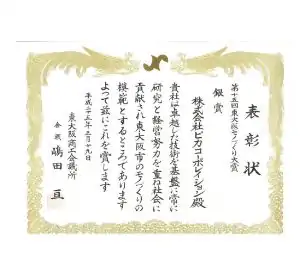 表彰状
第十五回東大阪モノづくり大賞
銀賞
株式会社ピカコーポレイション殿
貴社は卓越した技術を基盤に常に
研究と経営努力を重ね社会に
貢献され東大阪市のモノづくりの
模範とするところであります
よって茲にこれを賞します
平成二十五年二月十九日
東大阪商工会議所
会頭 嶋田 亘